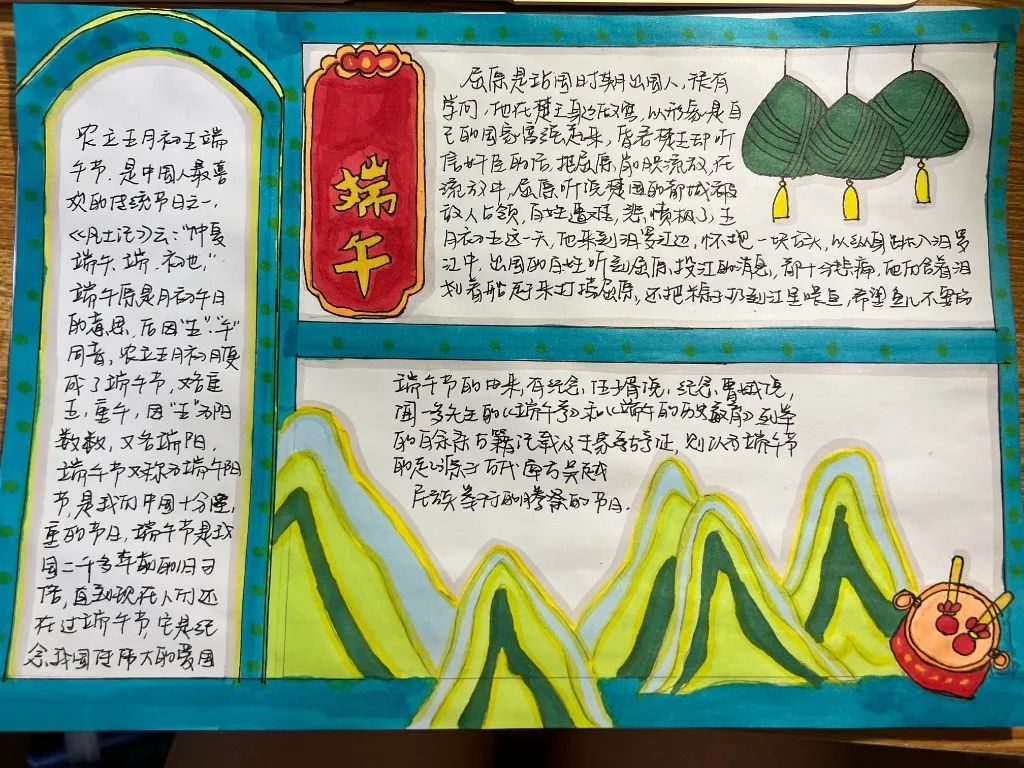 农立五月初五端
午节，是中国人最喜
欢的传统节日之一，
《风土记》云："仲夏
端午、端，初也，"
端午原是月初午日
的意思，后因"五"、"午"
同音，农立五月初
成了端午节，又名重
五，重午，因"五"为阳
数，又名端阳，
端午节又称为端午阳
节，是我们中国十分隆
重的节日，端午节是我
国二千多年前的旧习
俗，直到现在人们还
在过端午节，它是纪
念我国伟大的爱国
端
午
屈原是战国时期出国人，很有
学问，他在楚王身边做官，以
己的国家富强起来，楚王却听
信奸臣的话，把屈原削职流放，在
流放中，屈原听说楚国的都城被
敌人占领，百姓遭难，悲愤极了，五
月初五这一天，他来到汨罗江边，怀抱一块石头，以纵身跳入汨罗
江中，出国的百姓听到屈原投江的消息，都十分悲痛，他们含着泪
划着船赶来打捞屈原，还把粽子扔到江里喂鱼，希望鱼儿不要
端午节的由来，有纪念，伍子胥说，纪念曹娥说，
闻一多先生的《端午考》和《端午的历史教育》列举
的百余条古籍记载及专家考证，则认为端午节
的起源于古代南方吴越
民族举行的图腾祭的节日.